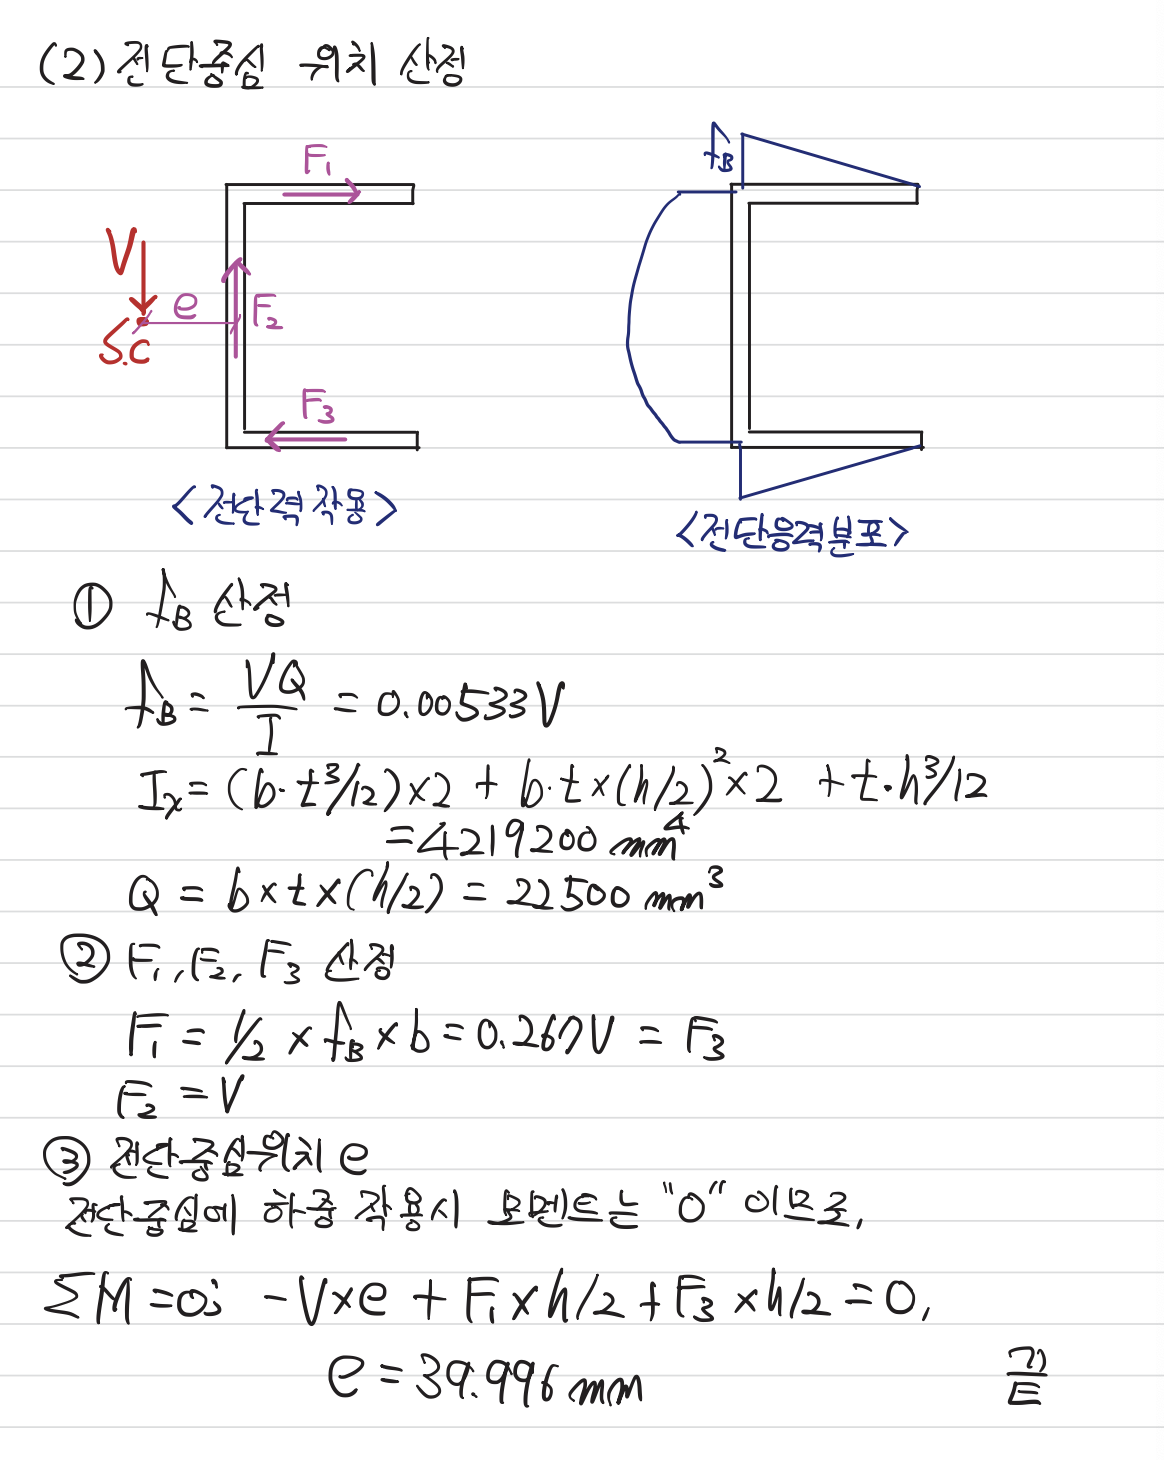 (2) 전단중심 위치 산정
F₁
V
e
F₂
S.C
F₃
<전단력 작용>
f_B
<전단응력분포>
① f_B 산정
f_B = VQ/I = 0.00533V
Iₓ = (b·t³/12)×2 + b·t×(h/2)²×2 + t·h³/12
=4219200 mm⁴
Q = b×t×(h/2) = 22500 mm³
② F₁, F₂, F₃ 산정
F₁ = 1/2 × f_B × b = 0.267V = F₃
F₂ = V
③ 전단중심위치 e
전단중심에 하중 작용시 모멘트는 "0" 이므로,
ΣM=0; -V×e + F₁×h/2 + F₃×h/2 = 0,
e = 39.996 mm
끝